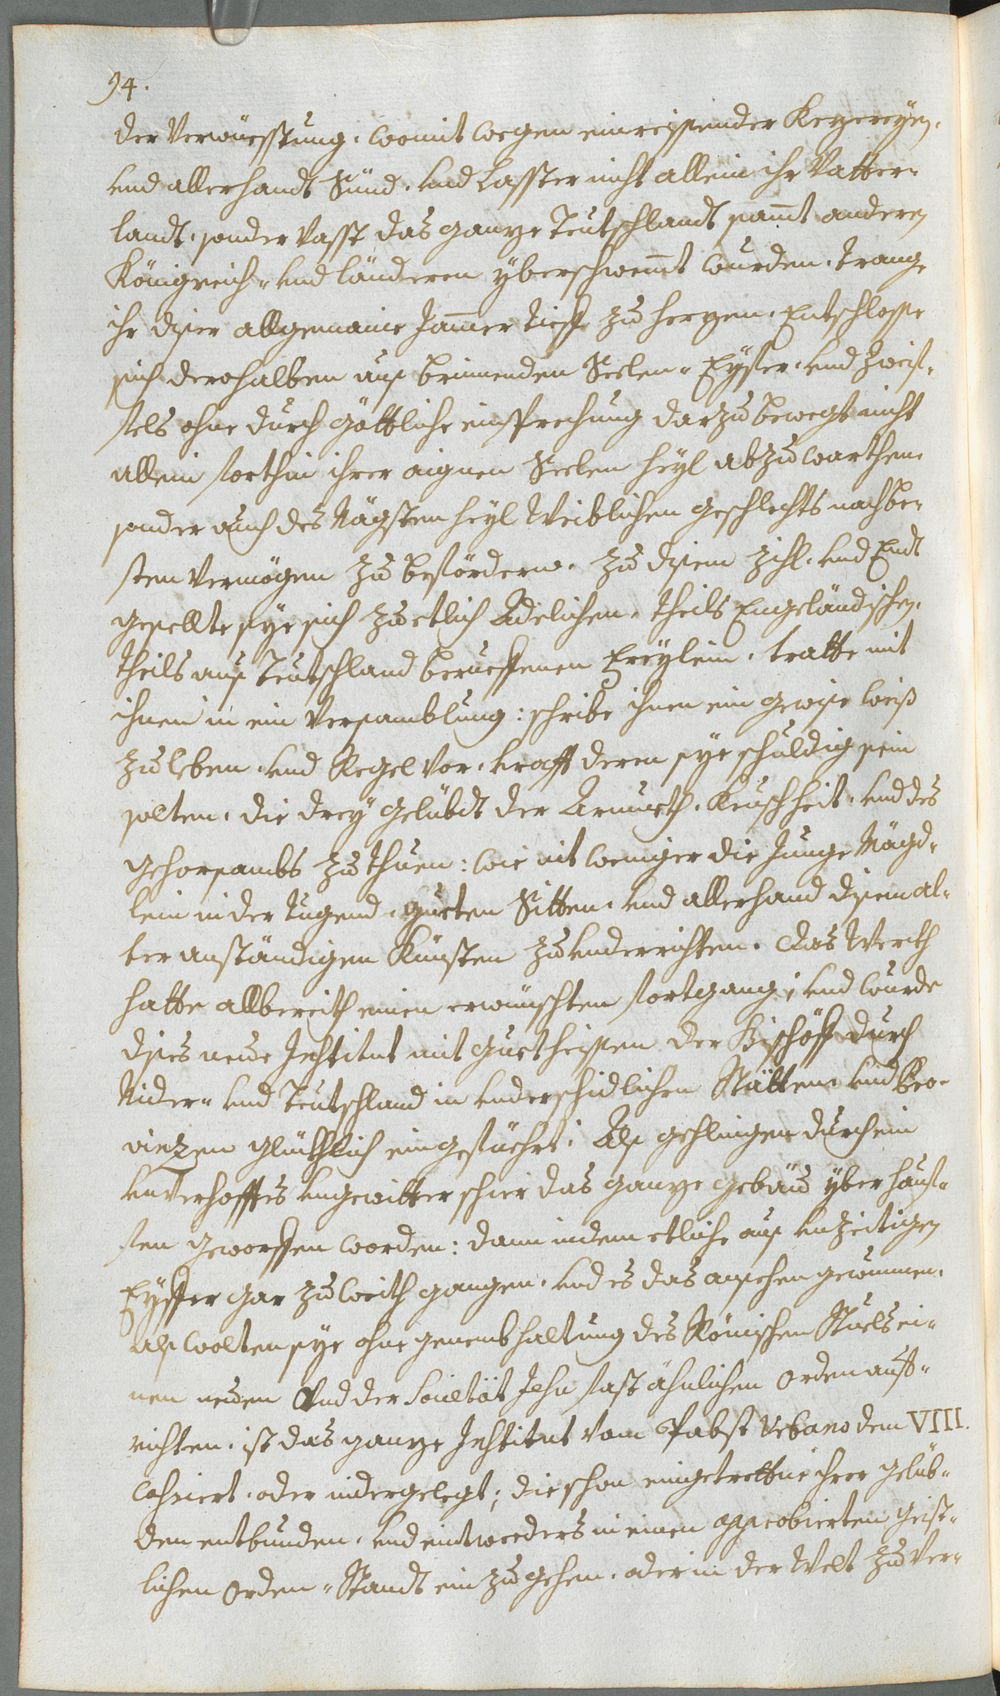 94.
der Verwüestung, womit wegen einreissender Kezereÿen,
und allerhandt Sünd, und Laster nicht allein ihr Vatter-
landt, sonder vasst das ganze Teutschlandt samt anderen
Königreich- und länderen ÿberschwemt wurden, trange
ihr diser allgemaine Jamer tieff zu herzen. Entschlosse
sich derohalben aus brinnenden Seelen- Eÿffer, und zweif-
fels ohne durch göttliche einsprechung darzu bewegt nicht
allein forthin ihrer aignen Seelen heÿl abzuwarthen,
sonder auch des Nägsten heÿl Weiblichen geschlechts nach be-
sten vermögen zu befördern. zu disem zihl, und Endt
gesellte sÿe sich zu etlich Adelichen, theils Engeländischen,
theils aus Teutschland berueffenen Freÿlein, tratte mit
ihnen in ein versamblung: schribe ihnen ein gewise weiß
zu leben, und Regel vor, krafft deren sÿe schuldig sein
solten, die dreÿ gelübdt der Armueth, Keuschheit, und des
gehorsambs zu thuen: wie nit weniger die Junge Mägd-
lein in der tugend, gueten Sitten, und allerhand disem al-
ter anständigen Künsten zu underrichten. Das Werckh
hatte allbereith einen erwünschten fortgang; und wurde
dises neue Institut mit guetheissen der Bischöff durch
Nider- und Teutschland in underschidlichen Stätten und Pro-
vinzen glücklich eingeführt. Als gehlingen durch ein
unverhofftes ungewitter schier das ganze gebäu ÿber hauf-
fen geworffen worden: dann indem etliche aus unzeitigen
Eÿffer gar zu weith gangen, und es das ansehen gewunnen,
als wolten sÿe ohne genembhaltung des Römischen Stuels ei-
nen neuen und der Societät Jesu fast ähnlichen orden auff-
richten, ist das ganze Institut vom Pabst Urbano dem VIII.
cassiert, oder nidergelegt; die schon eingetrettne ihrer gelüb-
den entbunden, und eintweders in einen approbierten geist-
lichen orden- Standt ein zu gehen, oder in der Welt zu ver-